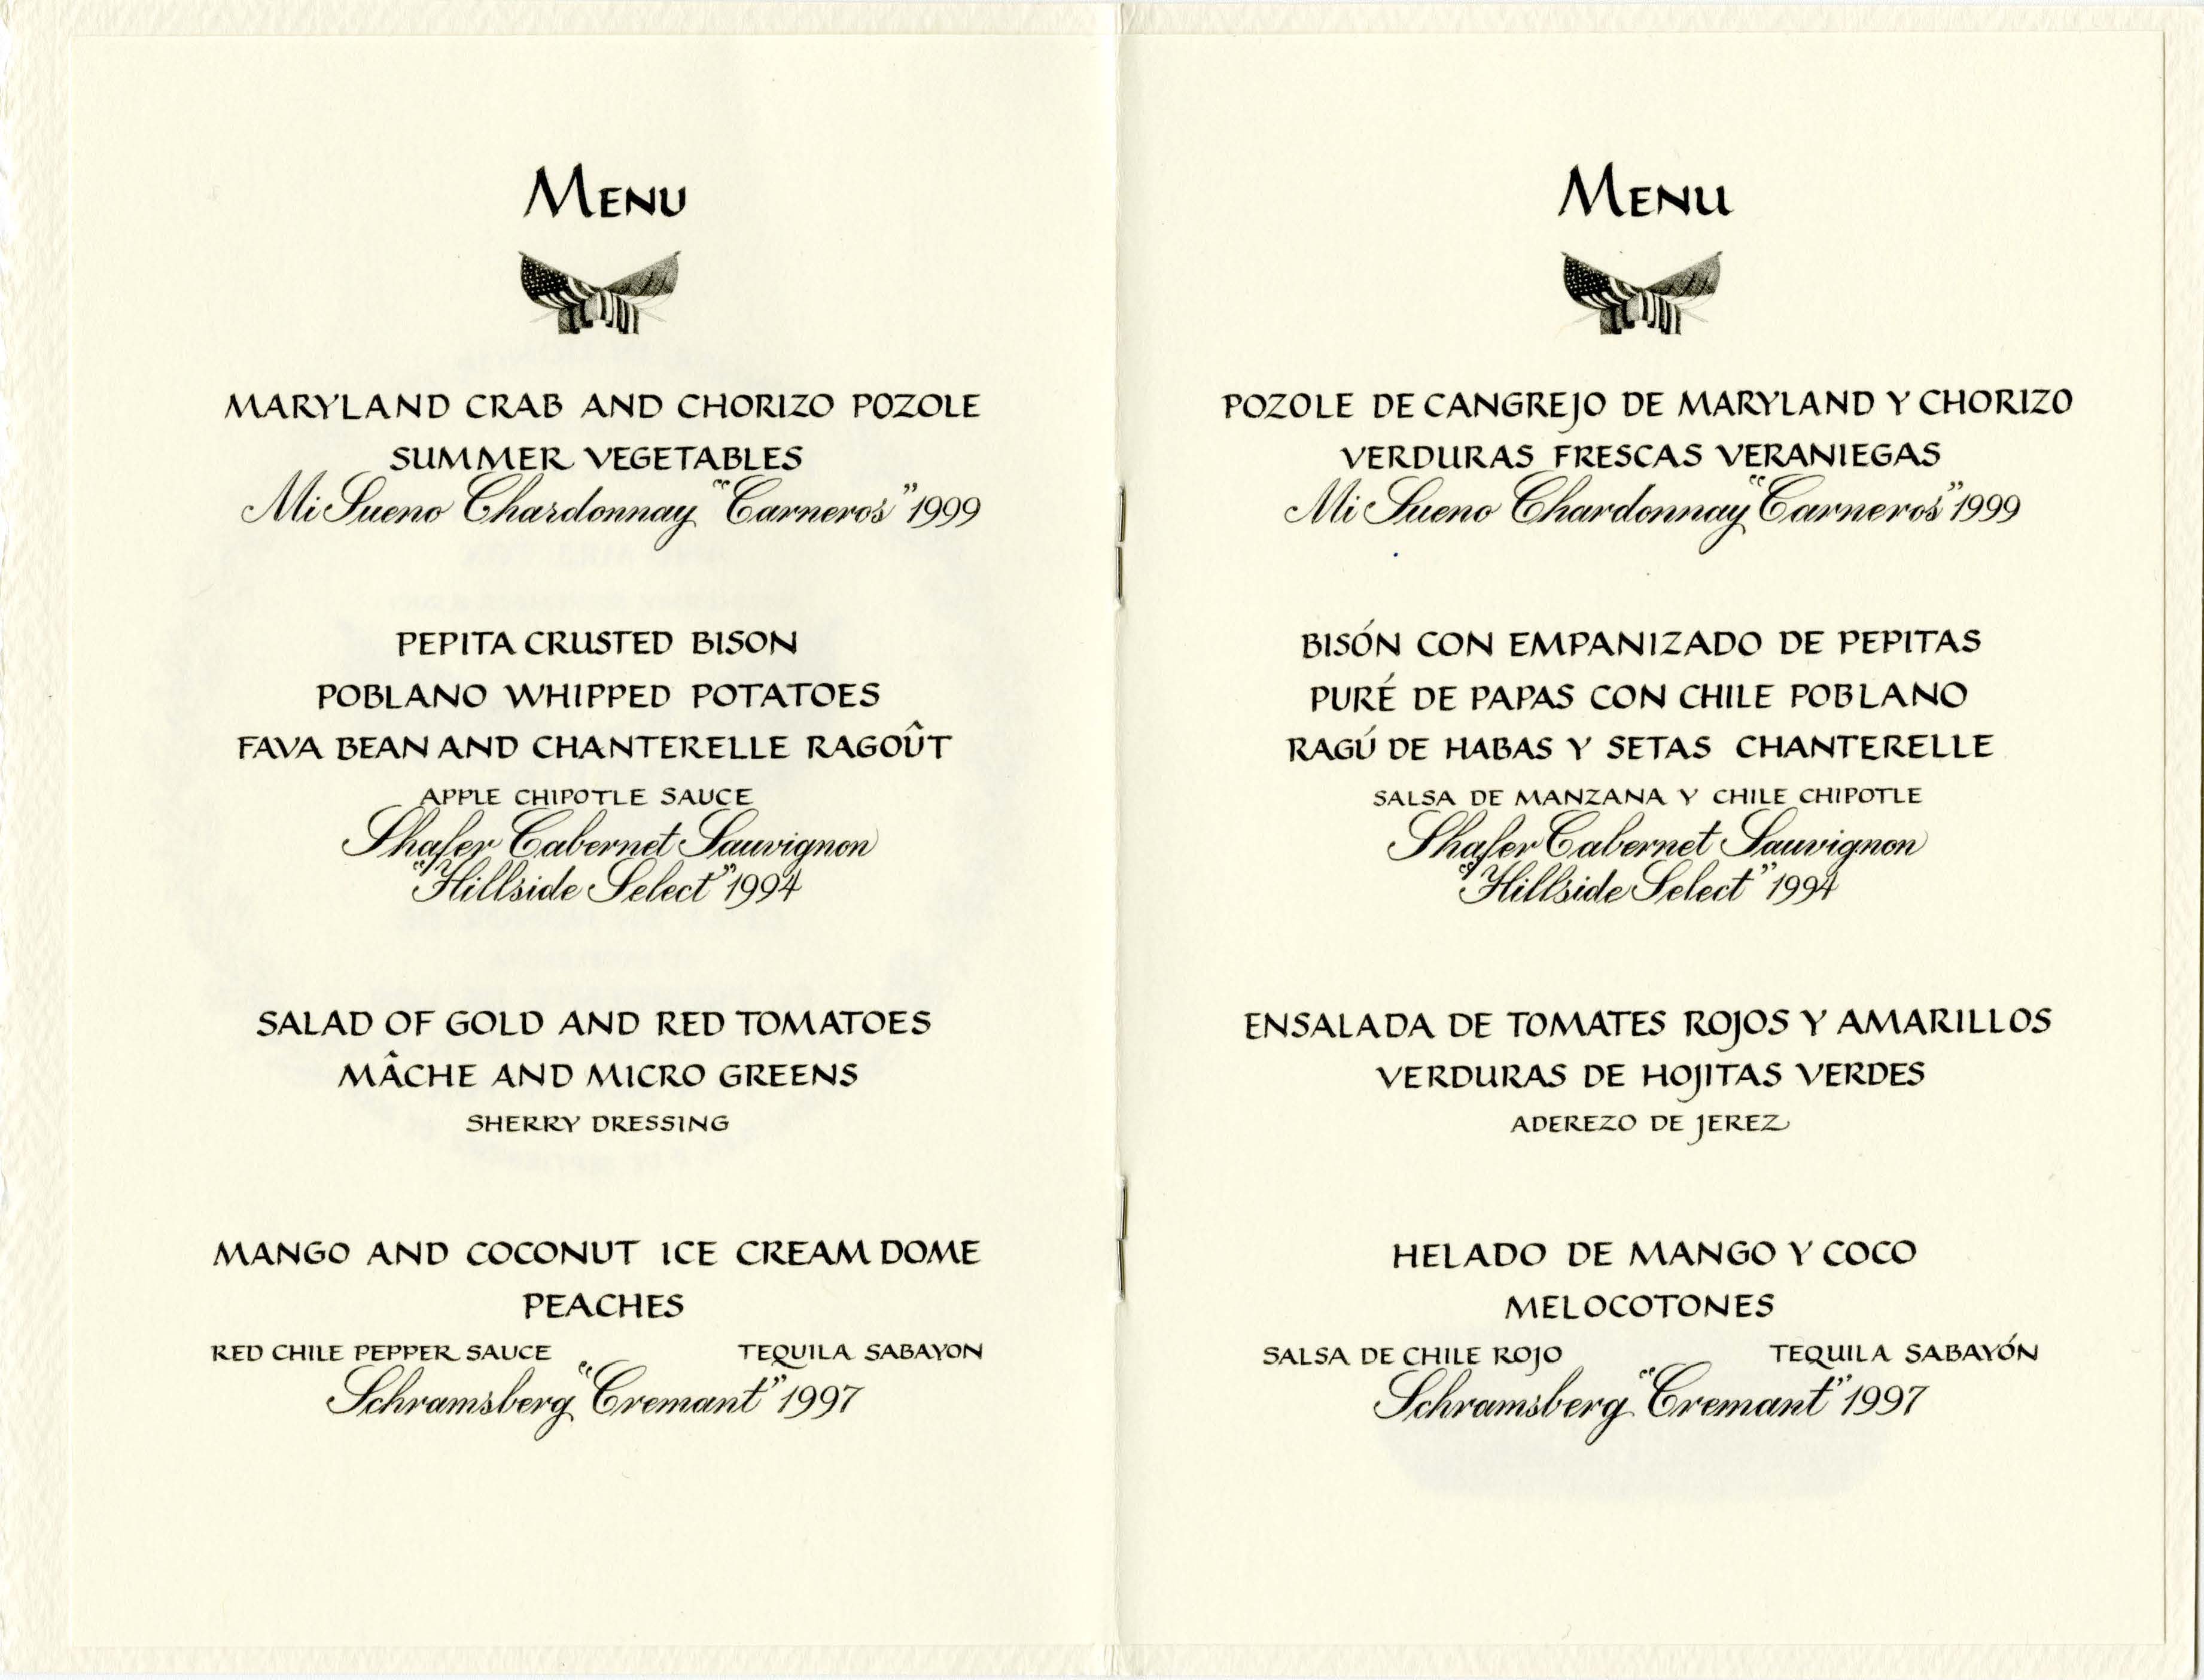 MENU
MARYLAND CRAB AND CHORIZO POZOLE
SUMMER VEGETABLES
Mi Sueno Chardonnay "Carneros" 1999
PEPITA CRUSTED BISON
POBLANO WHIPPED POTATOES
FAVA BEAN AND CHANTERELLE RAGOÛT
APPLE CHIPOTLE SAUCE
Shafer Cabernet Sauvignon
"Hillside Select" 1994
SALAD OF GOLD AND RED TOMATOES
MÂCHE AND MICRO GREENS
SHERRY DRESSING
MANGO AND COCONUT ICE CREAM DOME
PEACHES
RED CHILE PEPPER SAUCE TEQUILA SABAYON
Schramsberg "Cremant" 1997
MENU
POZOLE DE CANGREJO DE MARYLAND Y CHORIZO
VERDURAS FRESCAS VERANIEGAS
Mi Sueno Chardonnay "Carneros" 1999
BISÓN CON EMPANIZADO DE PEPITAS
PURÉ DE PAPAS CON CHILE POBLANO
RAGÚ DE HABAS Y SETAS CHANTERELLE
SALSA DE MANZANA Y CHILE CHIPOTLE
Shafer Cabernet Sauvignon
"Hillside Select" 1994
ENSALADA DE TOMATES ROJOS Y AMARILLOS
VERDURAS DE HOJITAS VERDES
ADEREZO DE JEREZ
HELADO DE MANGO Y COCO
MELOCOTONES
SALSA DE CHILE ROJO TEQUILA SABAYÓN
Schramsberg "Cremant" 1997